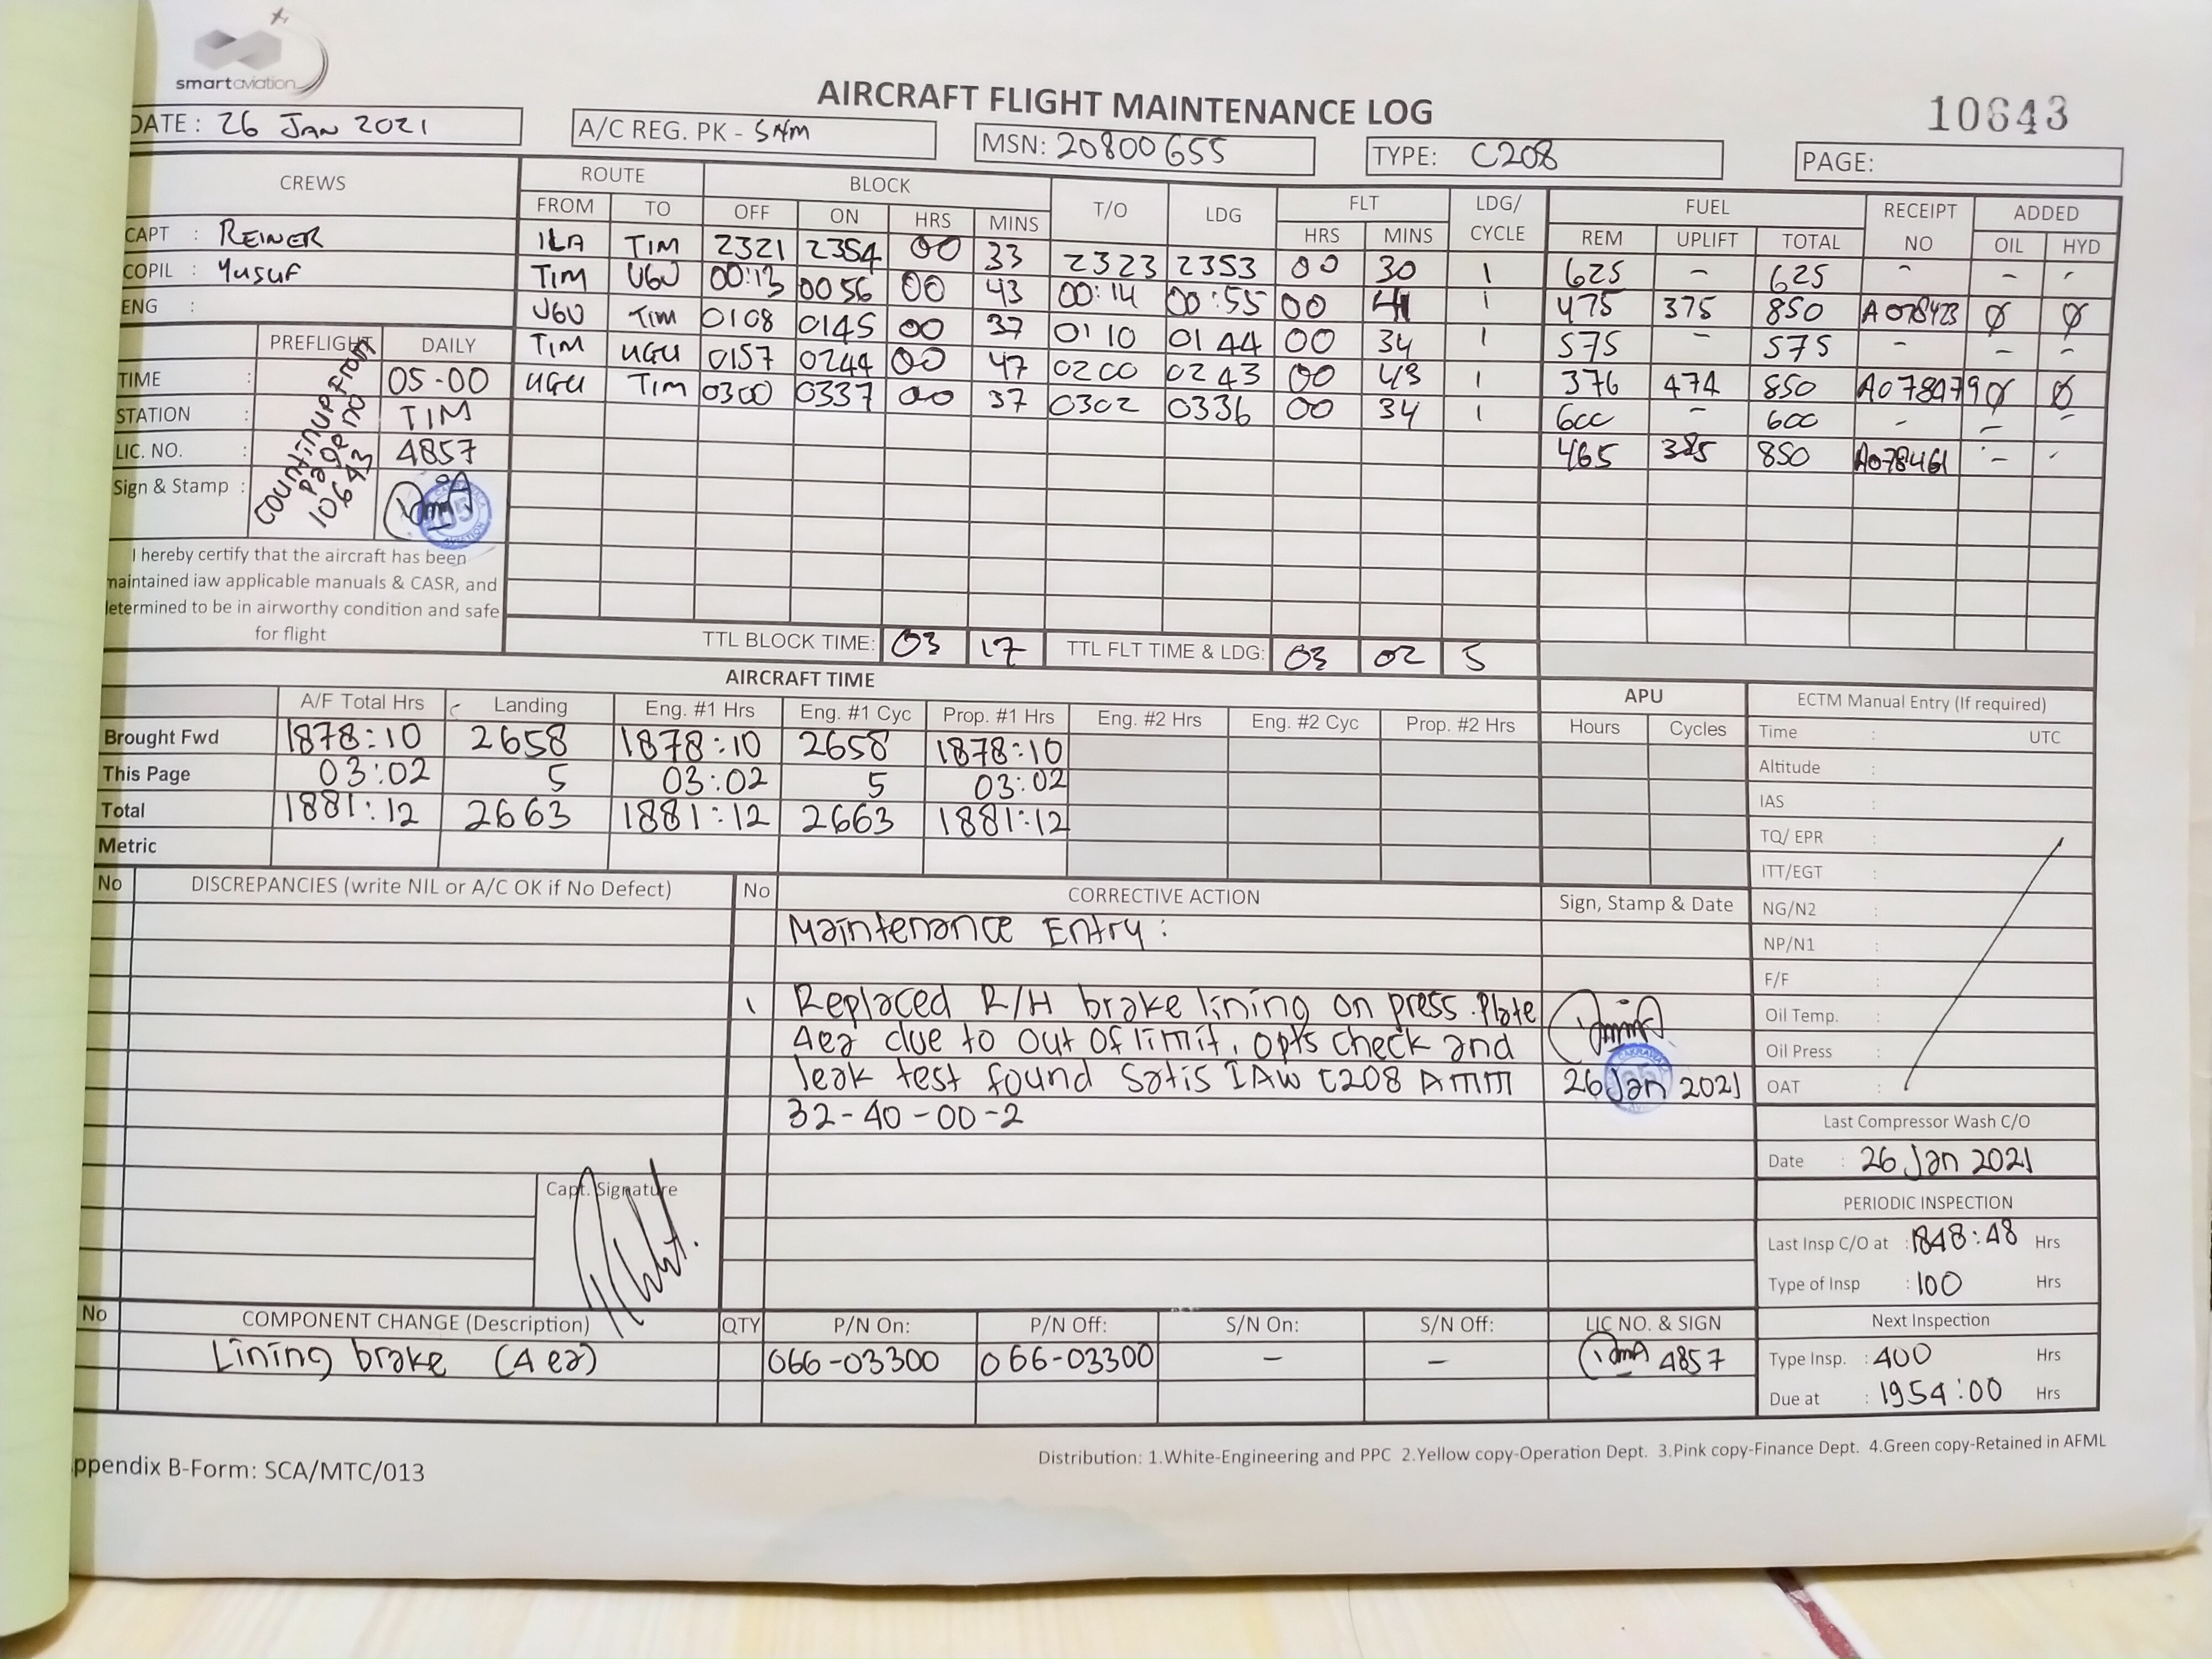 smartaviation
AIRCRAFT FLIGHT MAINTENANCE LOG
10643
DATE : 26 JAN 2021
A/C REG. PK - SNM
MSN: 20800655
TYPE: C208
PAGE:
CREWS ROUTE BLOCK T/O LDG FLT LDG/ CYCLE FUEL RECEIPT NO ADDED
FROM TO OFF ON HRS MINS HRS MINS REM UPLIFT TOTAL OIL HYD
CAPT : REINER
COPIL : Yusuf
ENG :
ILA TIM 2321 2354 00 33 2323 2353 00 30 1 625 - 625 - - -
TIM UGU 00:13 0056 00 43 00:14 00:55 00 41 1 475 375 850 A078423 Ø Ø
UGU TIM 0108 0145 00 37 0110 0144 00 34 1 575 - 575 - - -
TIM UGU 0157 0244 00 47 0200 0243 00 43 1 376 474 850 Ø Ø
UGU TIM 0300 0337 00 37 0302 0336 00 34 1 600 - 600 - - -
465 385 850 A078461 - -
PREFLIGHT DAILY
TIME : 05-00
STATION : TIM
LIC. NO. : 4857
Sign & Stamp :
COUNTINUE FROM
page no
10643
I hereby certify that the aircraft has been
maintained iaw applicable manuals & CASR, and
determined to be in airworthy condition and safe
for flight
TTL BLOCK TIME: 03 17 TTL FLT TIME & LDG: 03 02 5
AIRCRAFT TIME
APU
ECTM Manual Entry (If required)
A/F Total Hrs Landing Eng. #1 Hrs Eng. #1 Cyc Prop. #1 Hrs Eng. #2 Hrs Eng. #2 Cyc Prop. #2 Hrs Hours Cycles
Brought Fwd 1878:10 2658 1878:10 2658 1878:10
This Page 03:02 5 03:02 5 03:02
Total 1881:12 2663 1881:12 2663 1881:12
Metric
Time : UTC
Altitude :
IAS :
TQ/ EPR :
ITT/EGT :
NG/N2 :
NP/N1 :
F/F :
Oil Temp. :
Oil Press :
OAT :
No DISCREPANCIES (write NIL or A/C OK if No Defect) No CORRECTIVE ACTION Sign, Stamp & Date
Maintenance Entry :
1 Replaced R/H brake lining on press.Plate
4ea due to out of limit, opts check and
leak test found Satis IAW C208 AMM
32-40-00-2
26 Jan 2021
Capt. Signature
Last Compressor Wash C/O
Date : 26 Jan 2021
PERIODIC INSPECTION
Last Insp C/O at : 1848:48 Hrs
Type of Insp : 100 Hrs
Next Inspection
Type Insp. : 400 Hrs
Due at : 1954:00 Hrs
No COMPONENT CHANGE (Description) QTY P/N On: P/N Off: S/N On: S/N Off: LIC NO. & SIGN
Lining brake (4 ea) 066-03300 066-03300 - - 4857
ppendix B-Form: SCA/MTC/013
Distribution: 1.White-Engineering and PPC 2.Yellow copy-Operation Dept. 3.Pink copy-Finance Dept. 4.Green copy-Retained in AFML